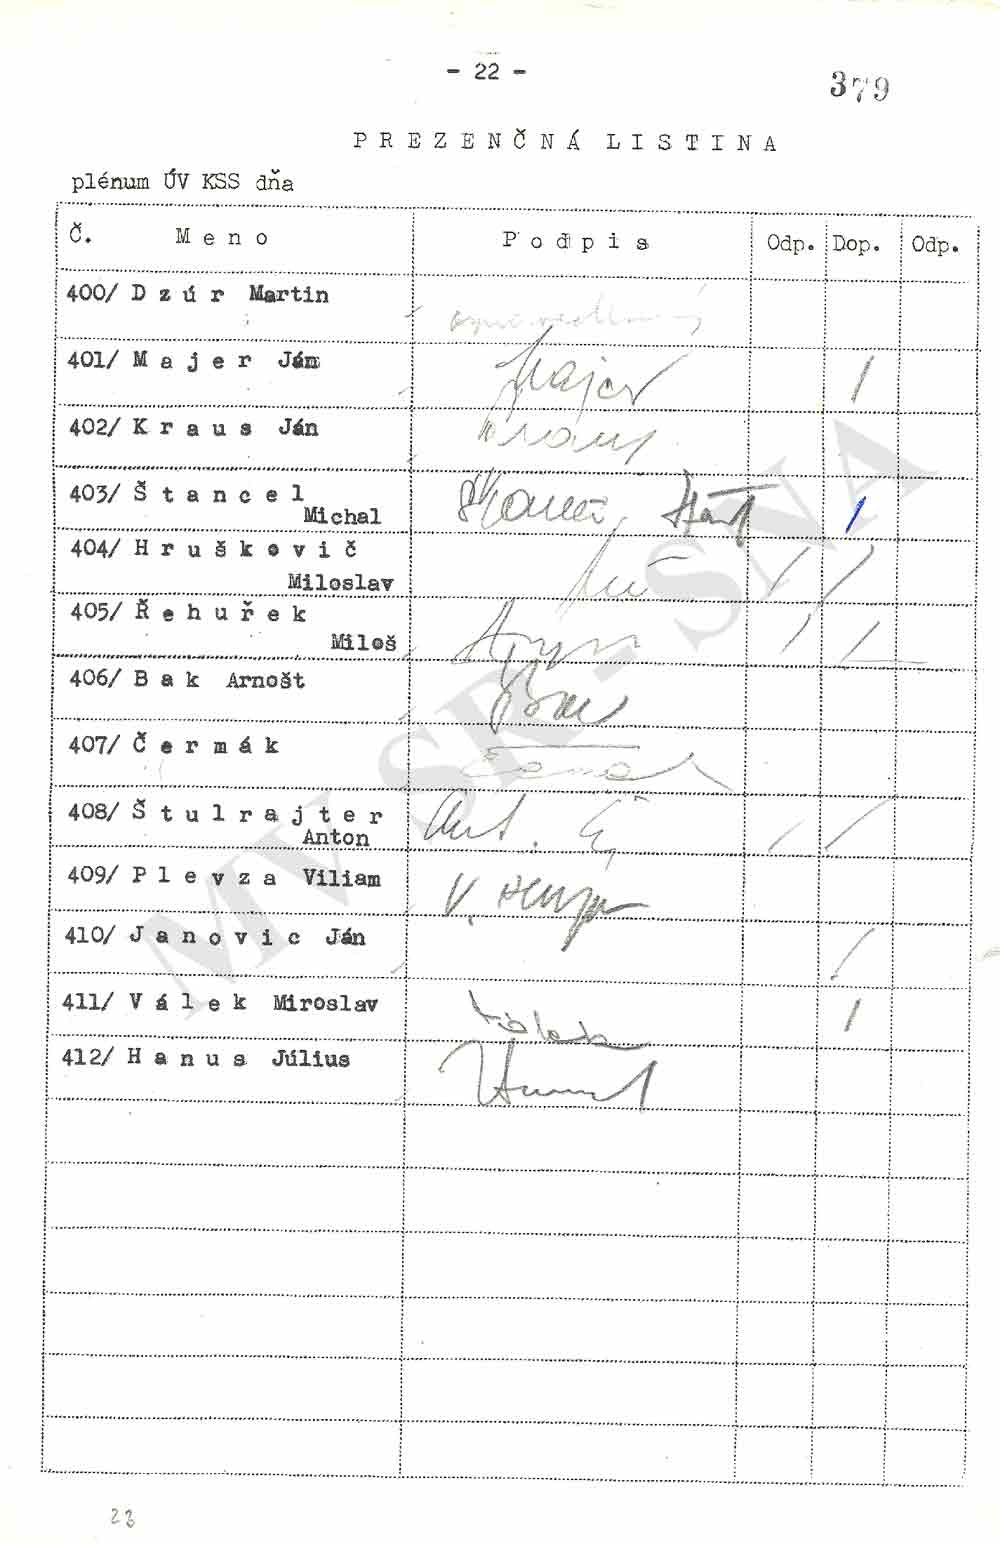 - 22 -
379
P R E Z E N Č N Á L I S T I N A
plénum ÚV KSS dňa
Č. M e n o P o d p i s Odp. Dop. Odp.
400/ D z ú r Martin
401/ M a j e r Ján Majer
402/ K r a u s Ján Kraus
403/ Š t a n c e l
Michal
404/ H r u š k o v i č
Miloslav
405/ Ř e h u ř e k
Miloš
406/ B a k Arnošt Bak
407/ Č e r m á k
408/ Š t u l r a j t e r
Anton
409/ P l e v z a Viliam
410/ J a n o v i c Ján
411/ V á l e k Miroslav Válek
412/ H a n u s Július
23
MV SR - SNA